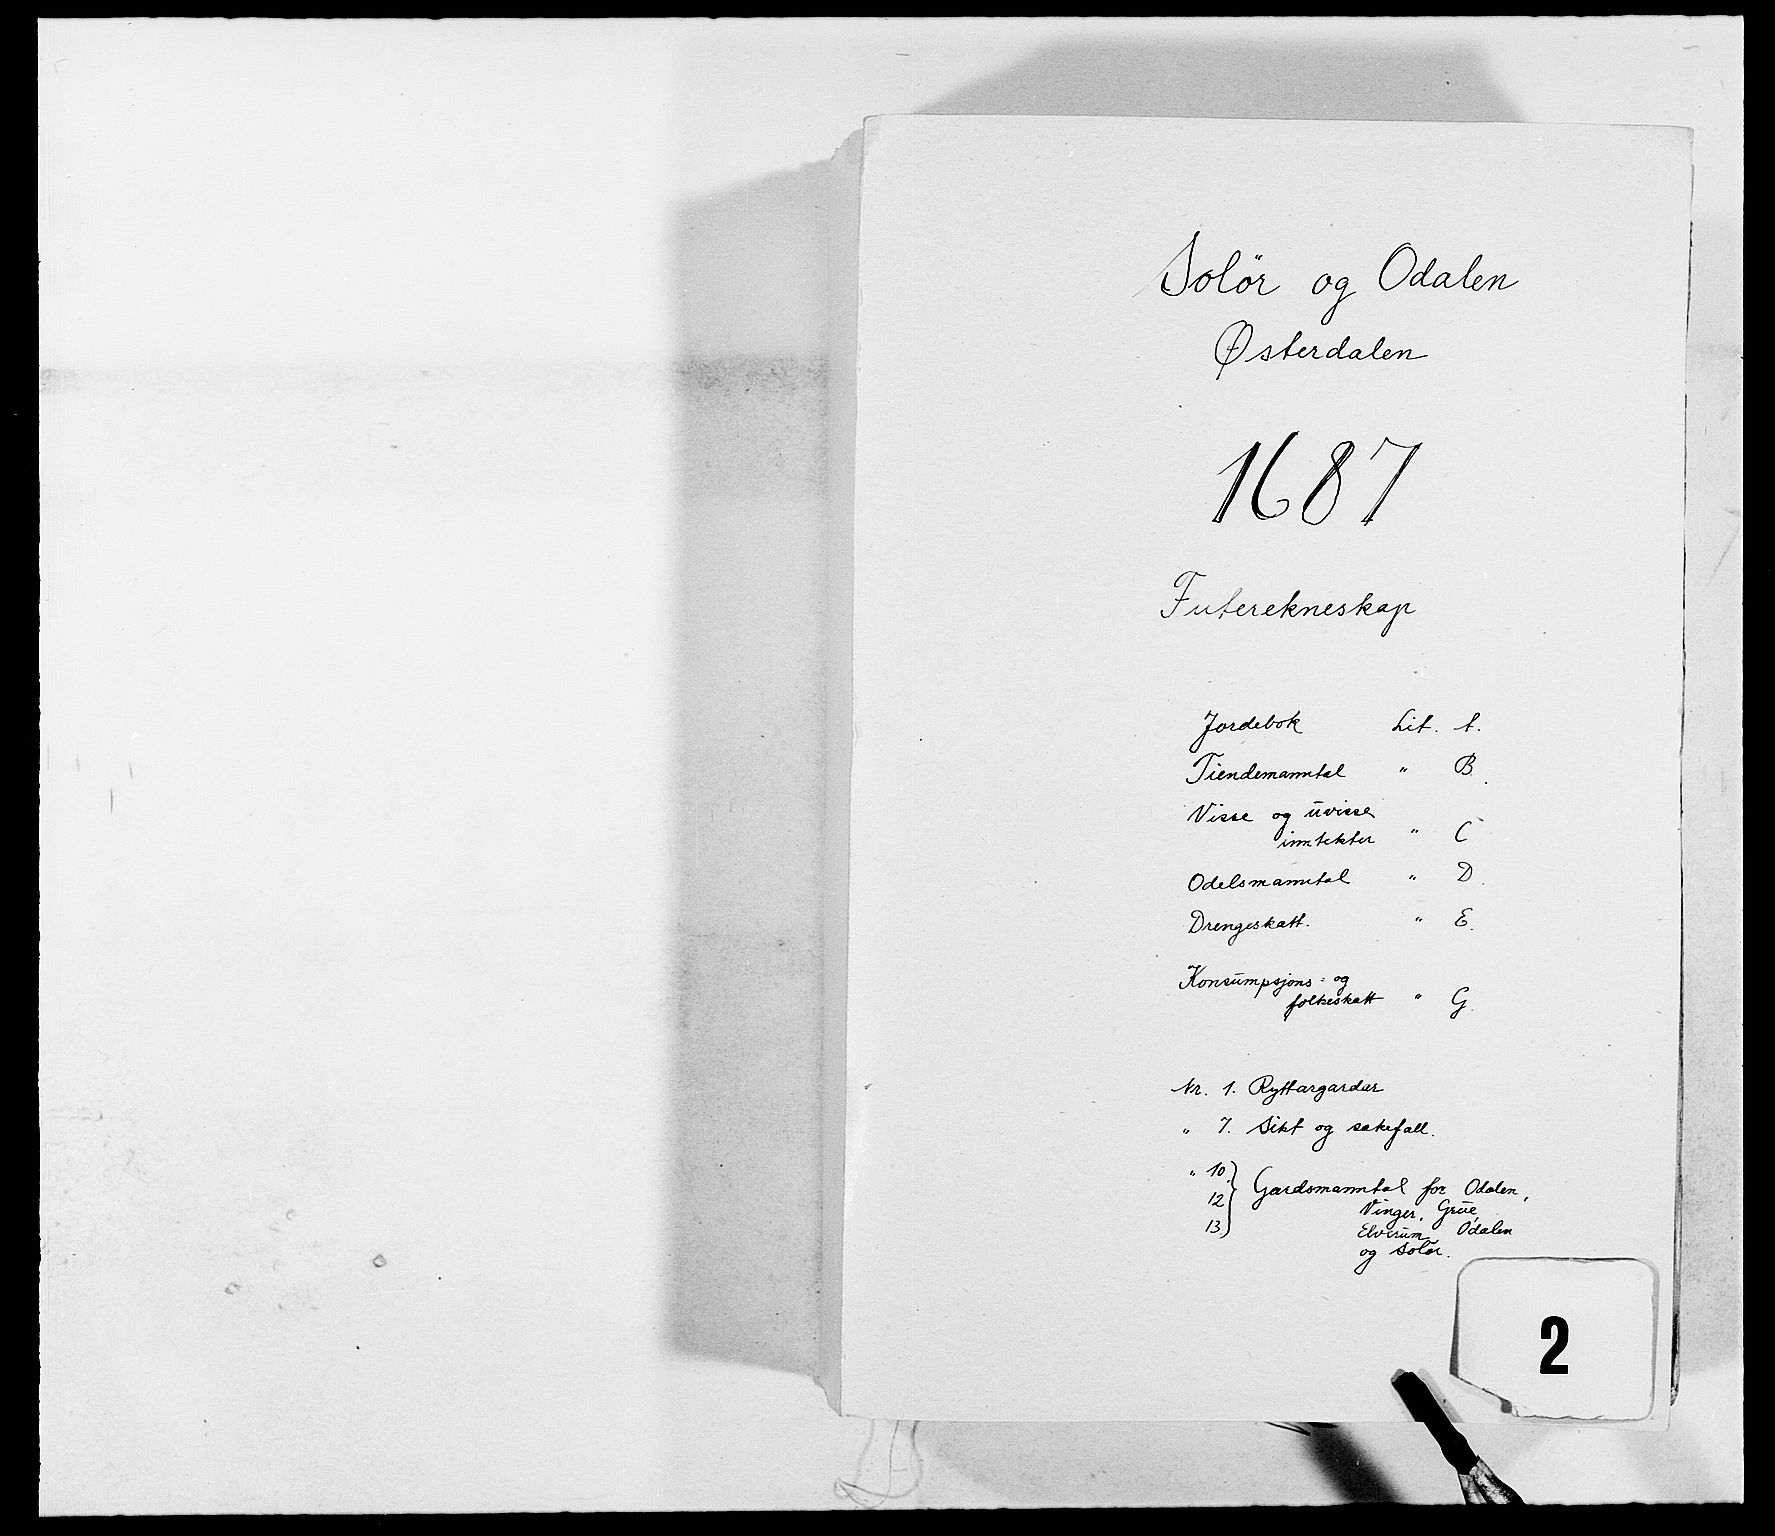 Solör og Odalen
Østerdalen
1687
Futerekneskap
Jordebok Lit. A.
Tiendemanntal " B.
Visse og uvisse
inntekter " C
Odelsmanntal " D.
Drengeskatt. " E.
Konsumpsjons- og
folkeskatt " G.
Nr. 1. Ryttargardar
" 7. Sikt og sakefall.
" 10.
12 } Gardsmanntal for Odalen,
Vinger, Grue,
13) Elverum, Odalen
og Solör.
2